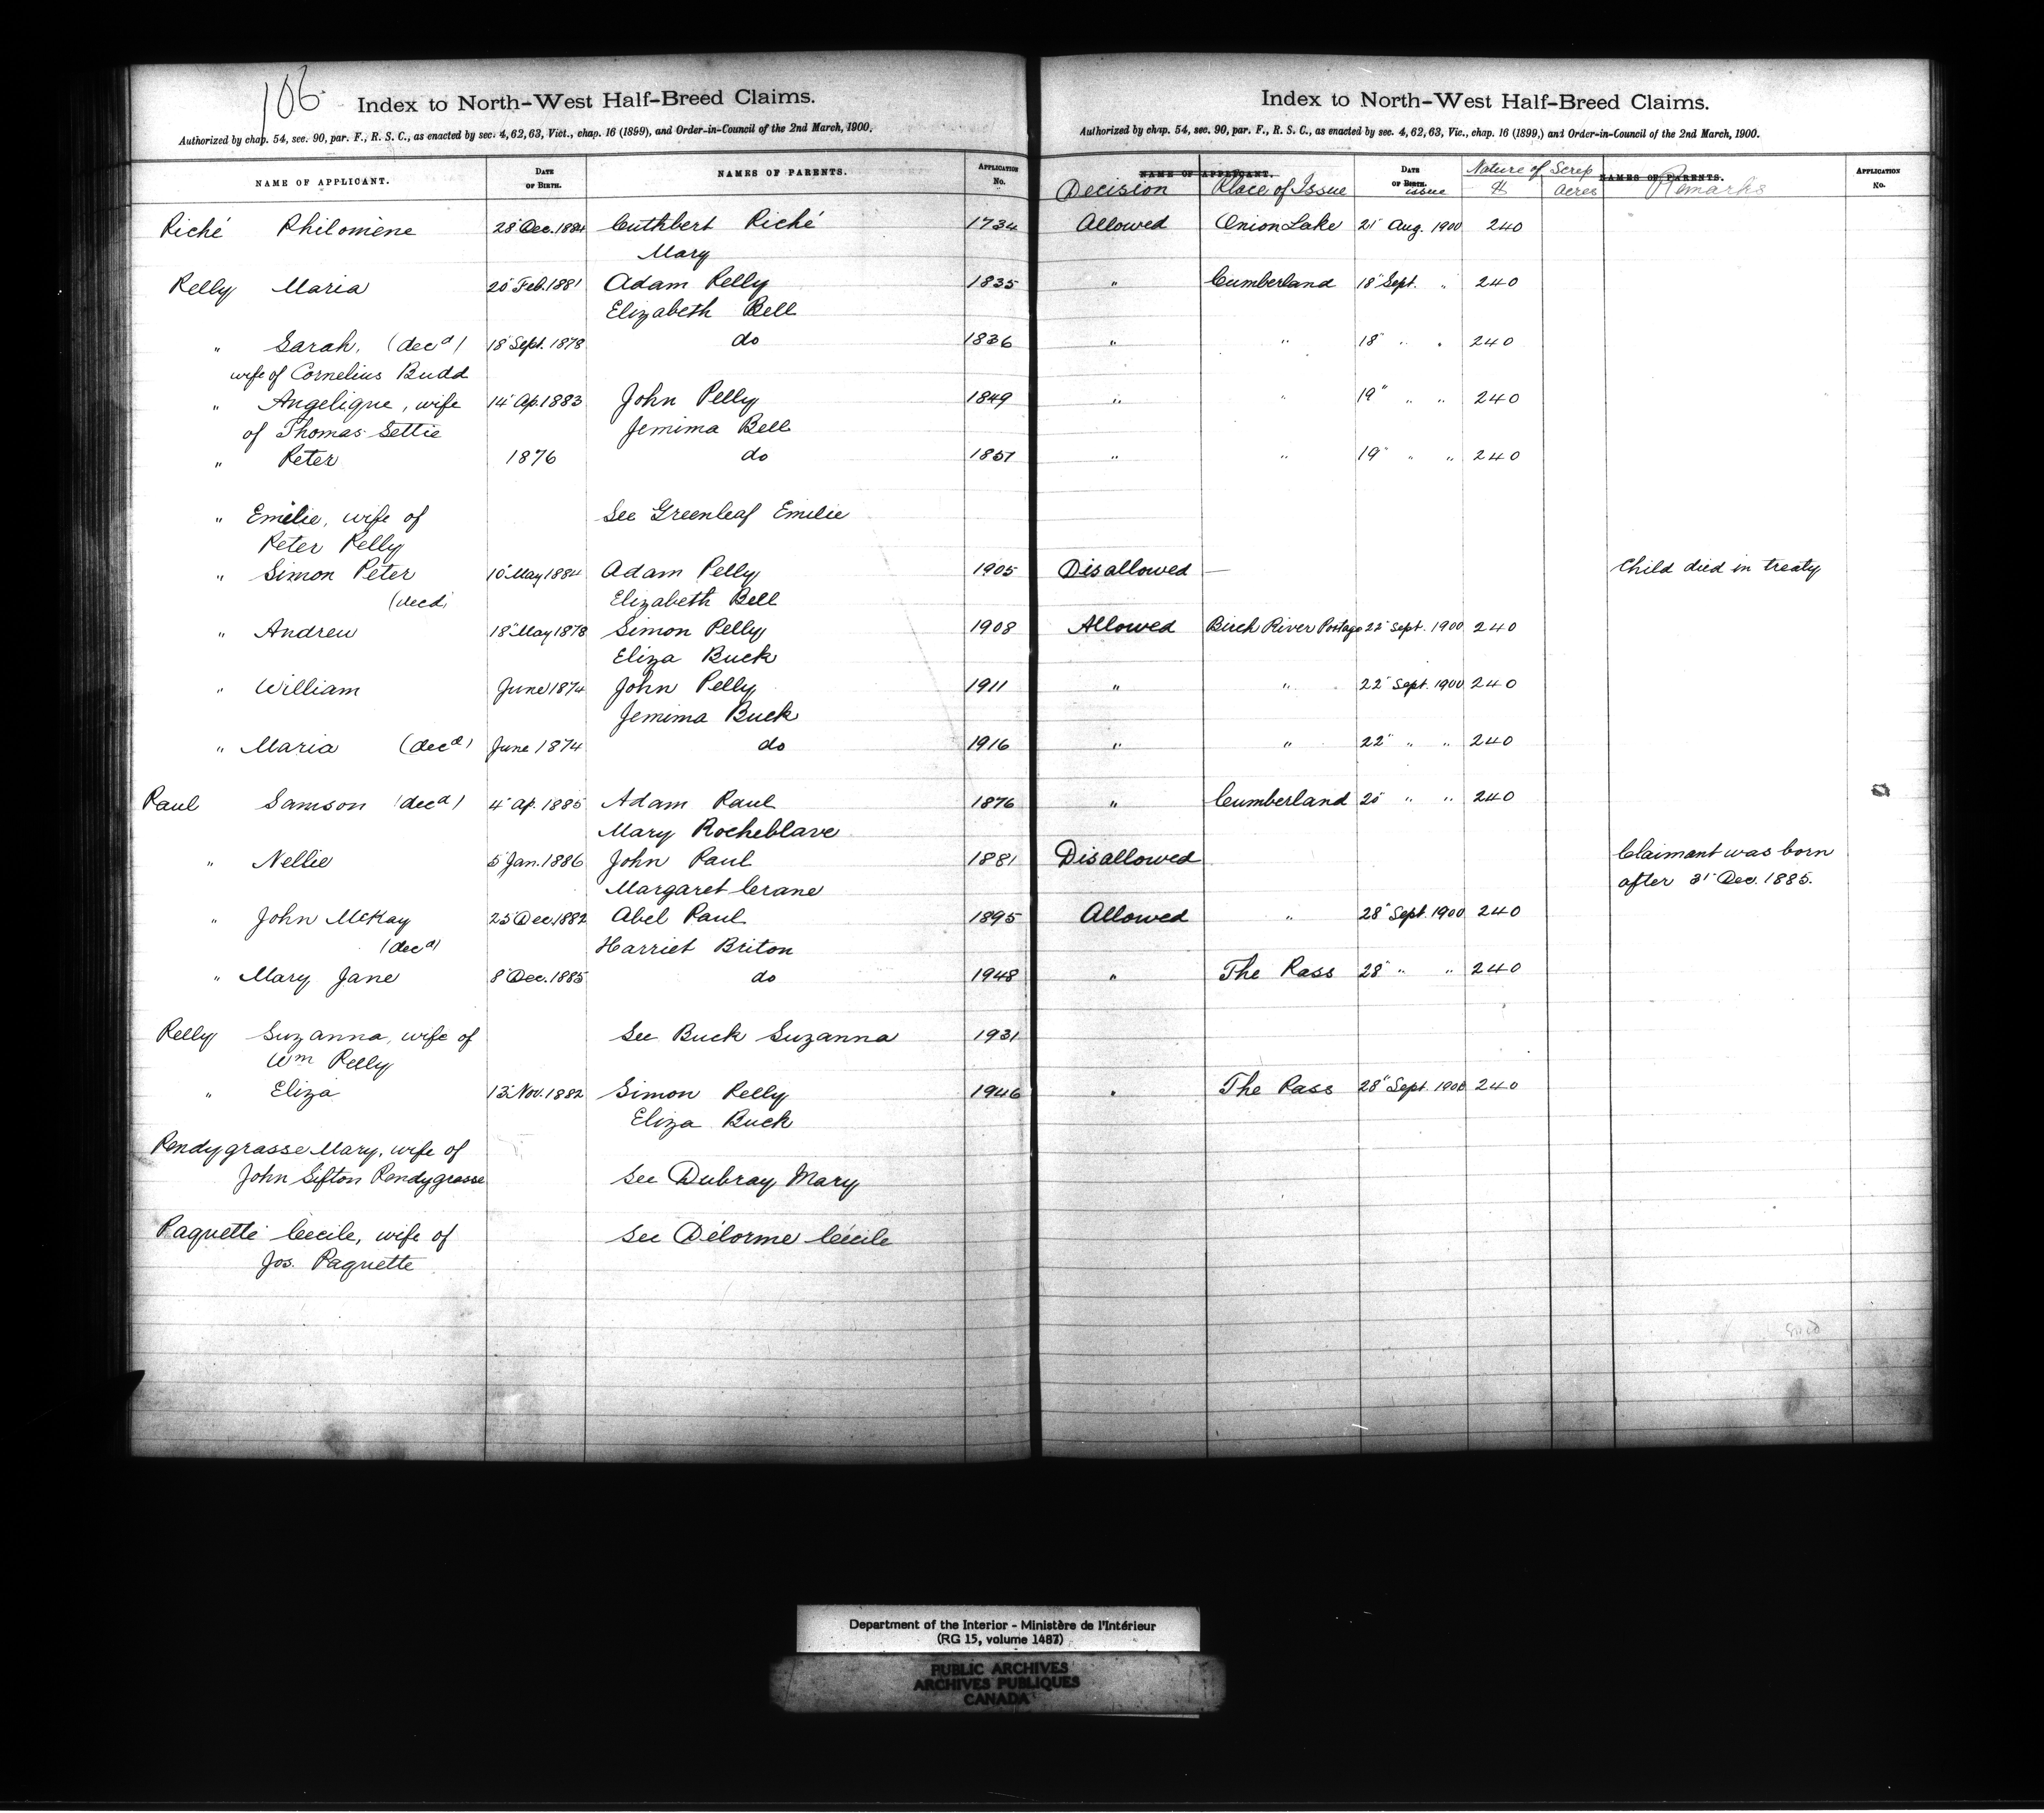 106
Index to North-West Half-Breed Claims.
Authorized by chap. 54, sec. 90, par. F., R. S. C., as enacted by sec. 4, 62, 63, Vict., chap. 16 (1899), and Order-in-Council of the 2nd March, 1900.
NAME OF APPLICANT. DATE OF BIRTH. NAMES OF PARENTS. APPLICATION No.
Index to North-West Half-Breed Claims.
Authorized by chap. 54, sec. 90, par. F., R. S. C., as enacted by sec. 4, 62, 63, Vic., chap. 16 (1899,) and Order-in-Council of the 2nd March, 1900.
NAME OF APPLICANT. DATE OF BIRTH. Nature of Scrip NAMES OF PARENTS. APPLICATION No.
Decision Place of Issue issue $ acres Remarks
Piché Philomène 28" Dec. 1884 Cuthbert Piché 1734 Allowed Onion Lake 21" Aug. 1900 240
Mary
Pelly Maria 20" Feb. 1881 Adam Pelly 1835 " Cumberland 18" Sept. " 240
Elizabeth Bell
" Sarah, (decd) 18" Sept. 1878 do 1836 " " 18" " " 240
wife of Cornelius Budd
" Angelique, wife 14" Ap. 1883 John Pelly 1849 " " 19" " " 240
of Thomas Settie Jemima Bell
" Peter 1876 do 1851 " " 19" " " 240
" Emilie, wife of See Greenleaf Emilie
Peter Pelly
" Simon Peter 10" May 1884 Adam Pelly 1905 Disallowed — Child died in treaty
(decd) Elizabeth Bell
" Andrew 18" May 1878 Simon Pelly 1908 Allowed Birch River Portage 22" Sept. 1900 240
Eliza Buck
" William June 1874 John Pelly 1911 " " 22" Sept. 1900 240
Jemima Buck
" Maria (decd) June 1874 do 1916 " " 22" " " 240
Paul Samson (decd) 4" Ap. 1885 Adam Paul 1876 " Cumberland 20" " " 240
Mary Rocheblave
" Nellie 5" Jan. 1886 John Paul 1881 Disallowed Claimant was born
Margaret Cerane after 31" Dec. 1885.
" John McKay 25" Dec. 1882 Abel Paul 1895 Allowed " 28" Sept. 1900 240
(decd) Harriet Briton
" Mary Jane 8" Dec. 1885 do 1948 " The Pass 28" " " 240
Pelly Suzanna, wife of See Buck Suzanna 1931
Wm Pelly
" Eliza 13" Nov. 1882 Simon Pelly 1946 " The Pass 28" Sept. 1900 240
Eliza Buck
Pendygrasse Mary, wife of
John Sifton Pendygrasse See Dubray Mary
Paquette Cecile, wife of See Délorme Cécile
Jos. Paquette
Department of the Interior - Ministère de l'Intérieur
(RG 15, volume 1487)
PUBLIC ARCHIVES
ARCHIVES PUBLIQUES
CANADA